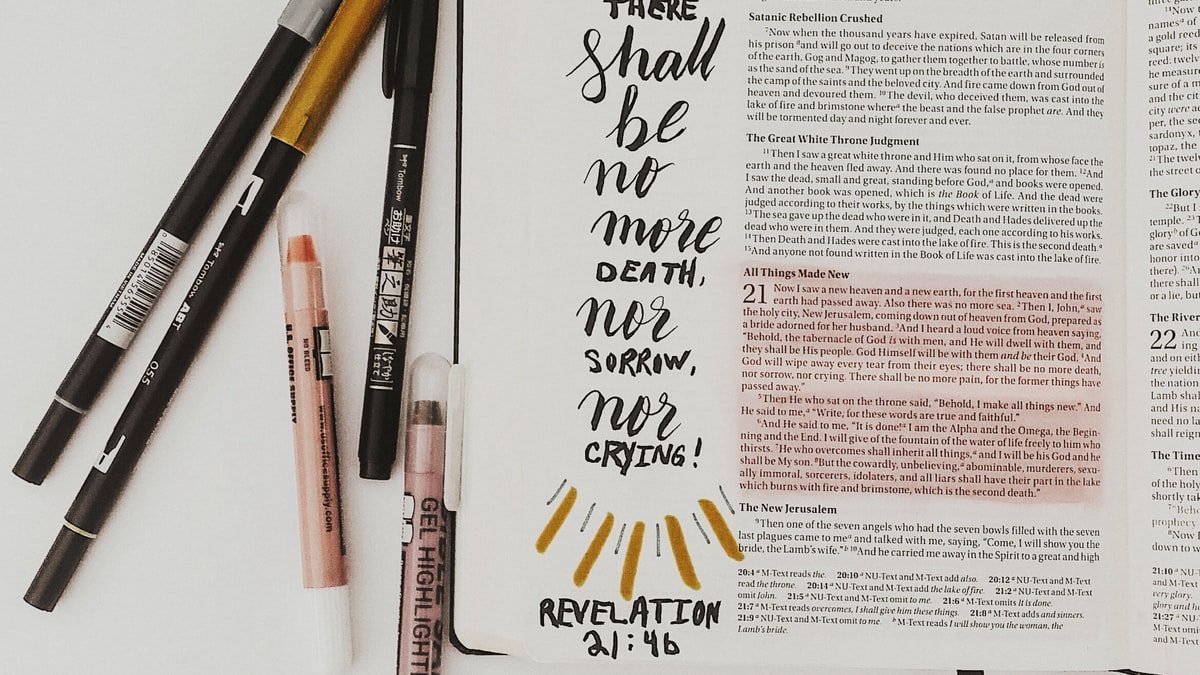 THERE
shall
be
no
more
DEATH,
nor
SORROW,
nor
CRYING!
REVELATION
21:4b
Satanic Rebellion Crushed
7Now when the thousand years have expired, Satan will be released from
his prison 8and will go out to deceive the nations which are in the four corners
of the earth, Gog and Magog, to gather them together to battle, whose number is
as the sand of the sea. 9They went up on the breadth of the earth and surrounded
the camp of the saints and the beloved city. And fire came down from God out of
heaven and devoured them. 10The devil, who deceived them, was cast into the
lake of fire and brimstone whereᵃ the beast and the false prophet are. And they
will be tormented day and night forever and ever.
The Great White Throne Judgment
11Then I saw a great white throne and Him who sat on it, from whose face the
earth and the heaven fled away. And there was found no place for them. 12And
I saw the dead, small and great, standing before God,ᵃ and books were opened.
And another book was opened, which is the Book of Life. And the dead were
judged according to their works, by the things which were written in the books.
13The sea gave up the dead who were in it, and Death and Hades delivered up the
dead who were in them. And they were judged, each one according to his works.
14Then Death and Hades were cast into the lake of fire. This is the second death.ᵃ
15And anyone not found written in the Book of Life was cast into the lake of fire.
All Things Made New
21 Now I saw a new heaven and a new earth, for the first heaven and the first
earth had passed away. Also there was no more sea. 2Then I, John,ᵃ saw
the holy city, New Jerusalem, coming down out of heaven from God, prepared as
a bride adorned for her husband. 3And I heard a loud voice from heaven saying,
"Behold, the tabernacle of God is with men, and He will dwell with them, and
they shall be His people. God Himself will be with them and be their God. 4And
God will wipe away every tear from their eyes; there shall be no more death,
nor sorrow, nor crying. There shall be no more pain, for the former things have
passed away."
5Then He who sat on the throne said, "Behold, I make all things new." And
He said to me,ᵃ "Write, for these words are true and faithful."
6And He said to me, "It is done!ᵃ I am the Alpha and the Omega, the Begin-
ning and the End. I will give of the fountain of the water of life freely to him who
thirsts. 7He who overcomes shall inherit all things,ᵃ and I will be his God and he
shall be My son. 8But the cowardly, unbelieving,ᵃ abominable, murderers, sexu-
ally immoral, sorcerers, idolaters, and all liars shall have their part in the lake
which burns with fire and brimstone, which is the second death."
The New Jerusalem
9Then one of the seven angels who had the seven bowls filled with the seven
last plagues came to meᵃ and talked with me, saying, "Come, I will show you the
bride, the Lamb's wife."ᵇ 10And he carried me away in the Spirit to a great and high
20:4 ᵃ M-Text reads the. 20:10 ᵃ NU-Text and M-Text add also. 20:12 ᵃ NU-Text and M-Text
read the throne. 20:14 ᵃ NU-Text and M-Text add the lake of fire. 21:2 ᵃ NU-Text and M-Text
omit John. 21:5 ᵃ NU-Text and M-Text omit to me. 21:6 ᵃ M-Text omits It is done.
21:7 ᵃ M-Text reads overcomes, I shall give him these things. 21:8 ᵃ M-Text adds and sinners.
21:9 ᵃ NU-Text and M-Text omit to me. ᵇ M-Text reads I will show you the woman, the
Lamb's bride.
The Glory
The River
22
The Time
Tombow ABT
055
Tombow
NO BLEED
U.S. OFFICE SUPPLY
www.usofficesupply.com
GEL HIGHLIGHT